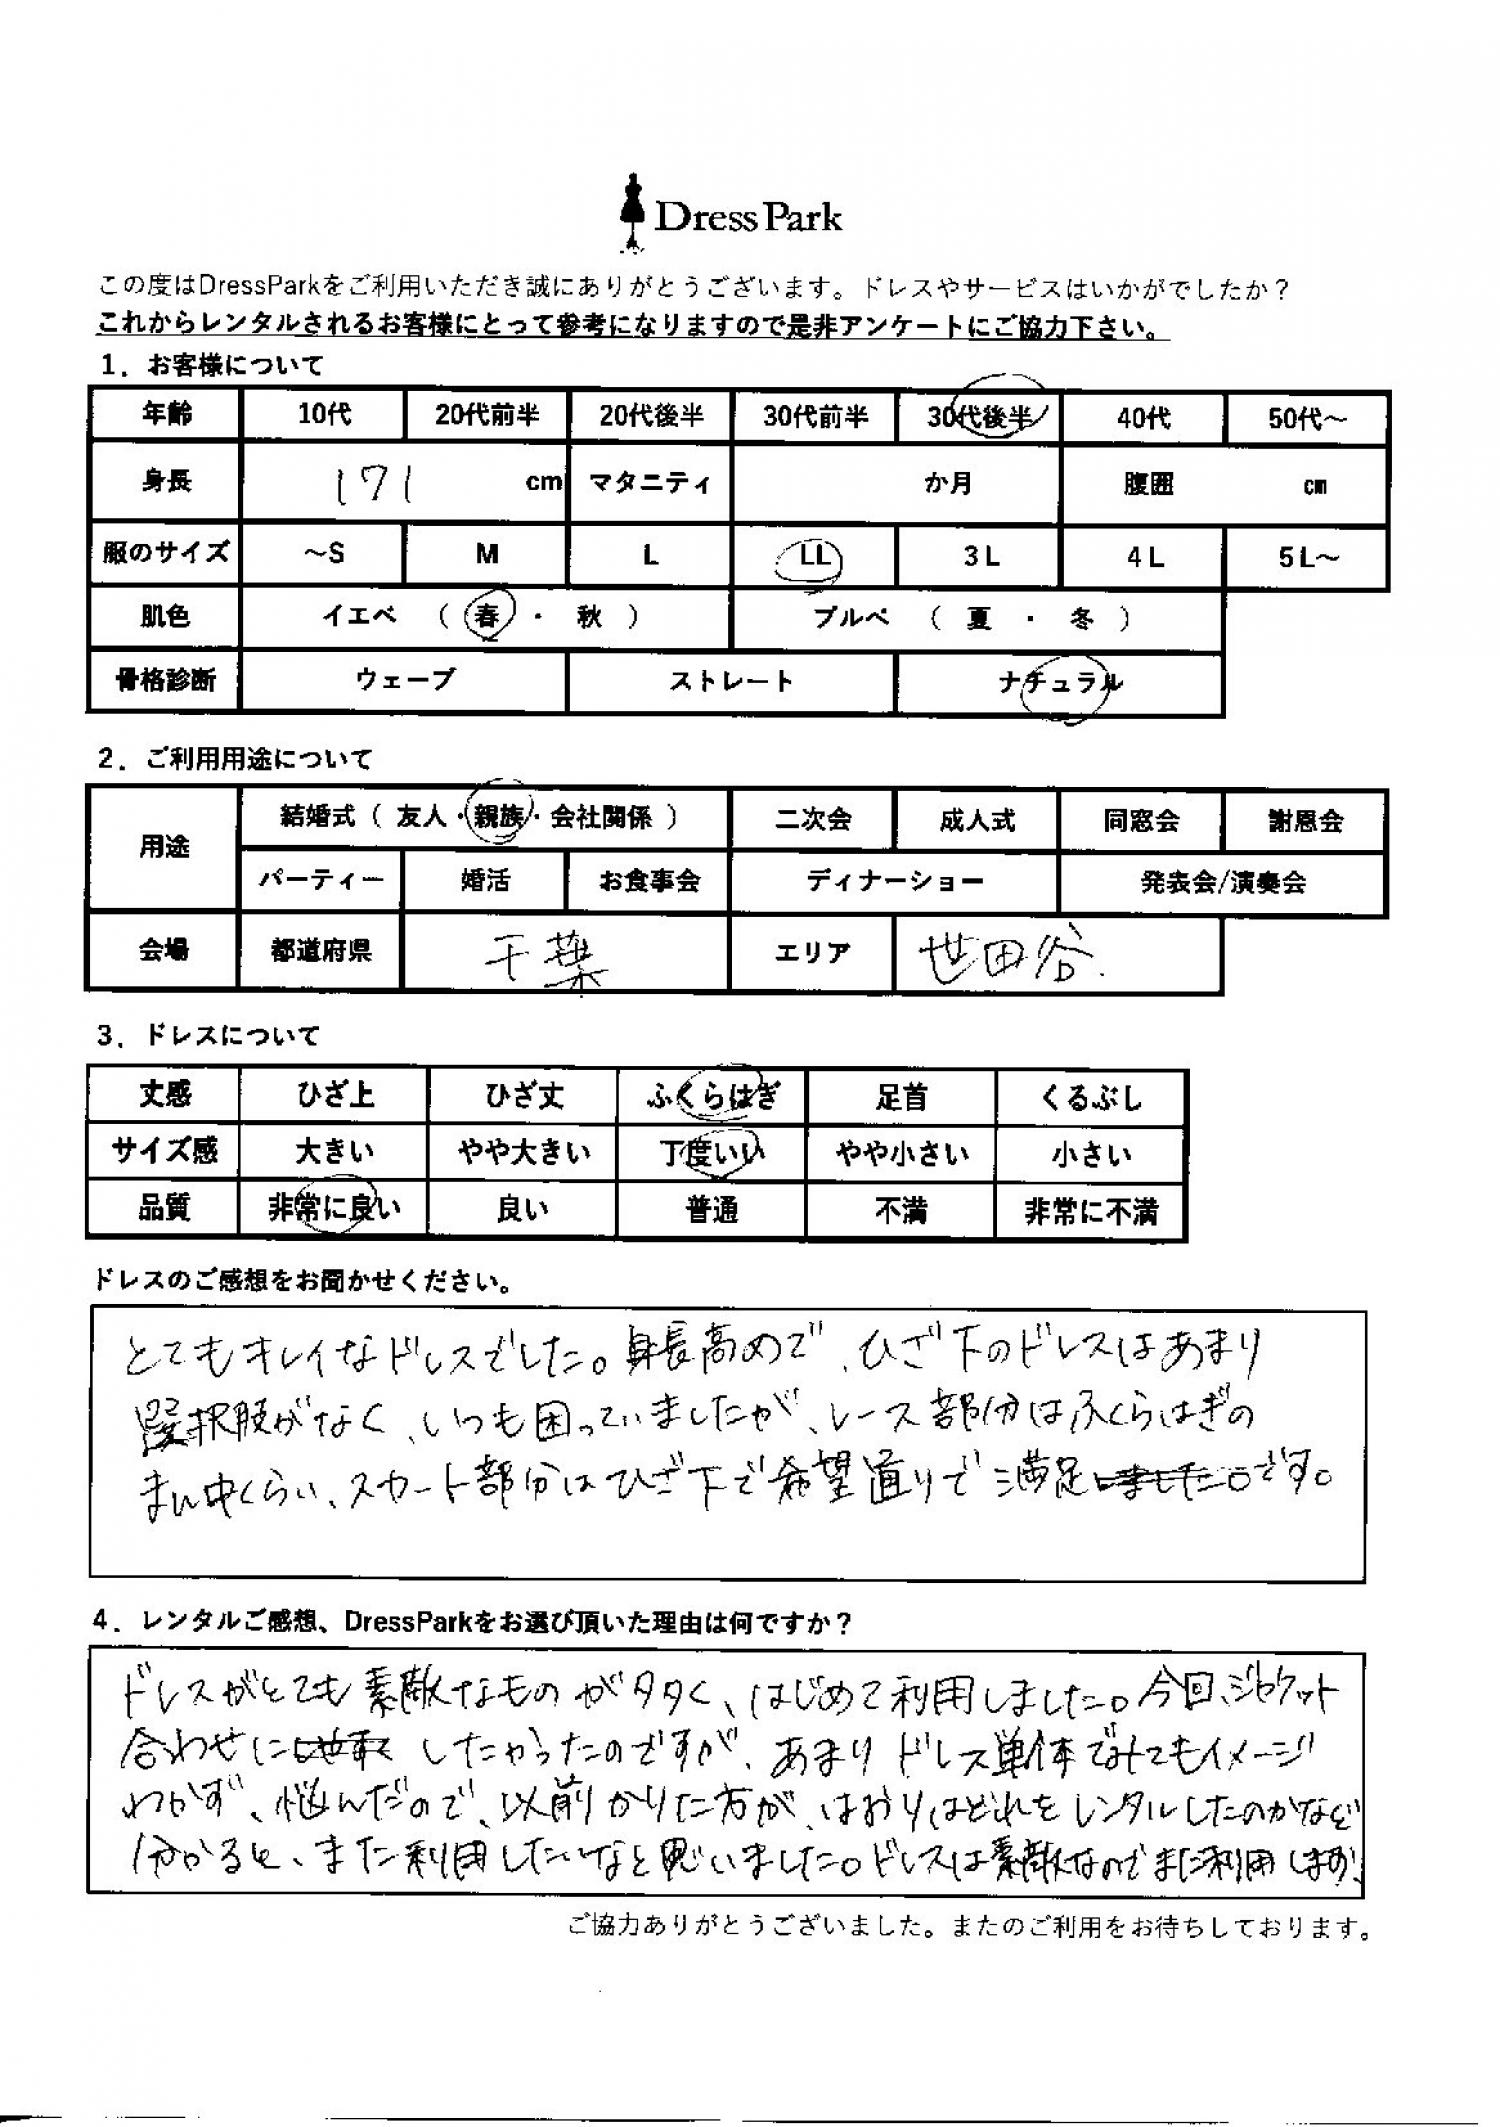 Dress Park
この度はDressParkをご利用いただき誠にありがとうございます。ドレスやサービスはいかがでしたか?
これからレンタルされるお客様にとって参考になりますので是非アンケートにご協力下さい。
1. お客様について
年齢 10代 20代前半 20代後半 30代前半 30代後半 40代 50代～
身長 171 cm マタニティ か月 腹囲 cm
服のサイズ ～S M L LL 3L 4L 5L～
肌色 イエベ ( 春 ・ 秋 ) ブルベ ( 夏 ・ 冬 )
骨格診断 ウェーブ ストレート ナチュラル
2. ご利用用途について
用途 結婚式 ( 友人・親族・会社関係 ) 二次会 成人式 同窓会 謝恩会
パーティー 婚活 お食事会 ディナーショー 発表会/演奏会
会場 都道府県 千葉 エリア 世田谷.
3. ドレスについて
丈感 ひざ上 ひざ丈 ふくらはぎ 足首 くるぶし
サイズ感 大きい やや大きい 丁度いい やや小さい 小さい
品質 非常に良い 良い 普通 不満 非常に不満
ドレスのご感想をお聞かせください。
とてもキレイなドレスでした。身長高めで、ひざ下のドレスはあまり
選択肢がなく、いつも困っていましたが、レース部分はふくらはぎの
まん中くらい、スカート部分はひざ下で希望通りで満足です。
4. レンタルご感想、DressParkをお選び頂いた理由は何ですか?
ドレスがとても素敵なものが多く、はじめて利用しました。今回、ジャケット
合わせにしたかったのですが、あまりドレス単体でみてもイメージ
わかず、悩んだので、以前かりた方が、はおりはどれをレンタルしたのかなど
分かると、また利用したいなと思いました。ドレスは素敵なのでまた利用します、
ご協力ありがとうございました。またのご利用をお待ちしております。